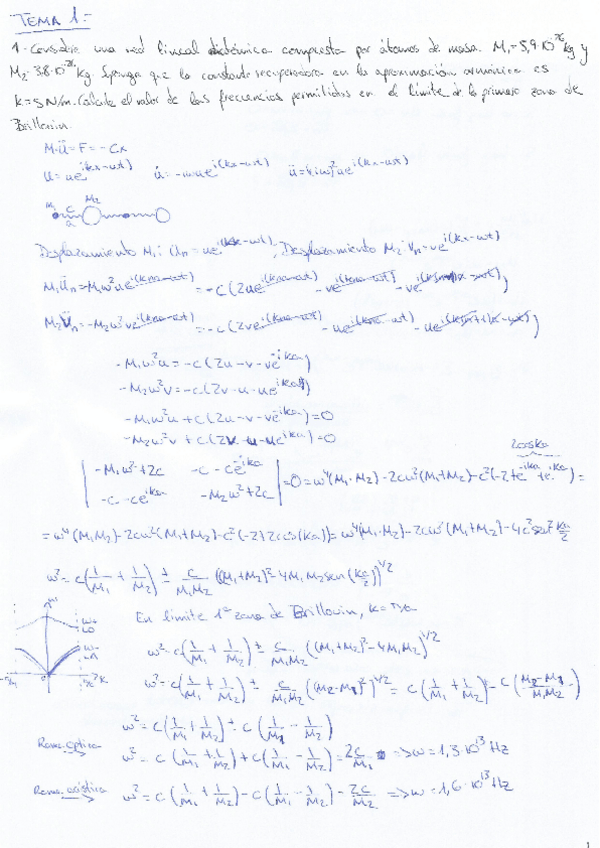 TEMA 1:-
1.- Considere una red lineal diatómica compuesta por átomos de masa M₁=5,9·10⁻²⁶ kg y
M₂=3.8·10⁻²⁶ kg. Suponga que la constante recuperadora en la aproximación armónica es
K=5 N/m. Calcule el valor de las frecuencias permitidas en el límite de la primera zona de
Brillouin.
M·ü=F=-Cx
u=ue^i(kx-ωt) u̇=-iωue^i(kx-ωt)
M₁ C M₂
a
Desplazamiento M₁: Uₙ=ue^i(kx-ωt); Desplazamiento M₂: Vₙ=ve^i(kx-ωt)
-M₁ω²u=-c(2u-v-ve^-ika)
-M₂ω²v=-c(2v-u-ue^ika)
-M₁ω²u+c(2u-v-ve^-ika)=0
-M₂ω²v+c(2v-u-ue^ika)=0
2coska
| -M₁ω²+2c -c-ce^-ika |
| -c-ce^ika -M₂ω²+2c | =0=ω⁴(M₁·M₂)-2cω²(M₁+M₂)-c²(-2+e^-ika+e^ika)=
=ω⁴(M₁M₂)-2cω²(M₁+M₂)-c²(-2+2cos(ka))=ω⁴(M₁·M₂)-2cω²(M₁+M₂)-4c²sen²ka/2
ω²=c(1/M₁+1/M₂)±c/M₁M₂((M₁+M₂)²-4M₁M₂sen(ka/2))^1/2
En límite 1ª zona de Brillouin, k=π/a
ω²=c(1/M₁+1/M₂)±c/M₁M₂((M₁+M₂)²-4M₁M₂)^1/2
ω²=c(1/M₁+1/M₂)±c/M₁M₂((M₂-M₁)²)^1/2=c(1/M₁+1/M₂)±c(M₂-M₁/M₁M₂)
ω²=c(1/M₁+1/M₂)±c(1/M₁-1/M₂)
Rama óptica ω²=c(1/M₁+1/M₂)+c(1/M₁-1/M₂)=2c/M₁ =>ω=1,3·10¹³Hz
Rama acústica ω²=c(1/M₁+1/M₂)-c(1/M₁-1/M₂)=2c/M₂ =>ω=1,6·10¹³Hz
1